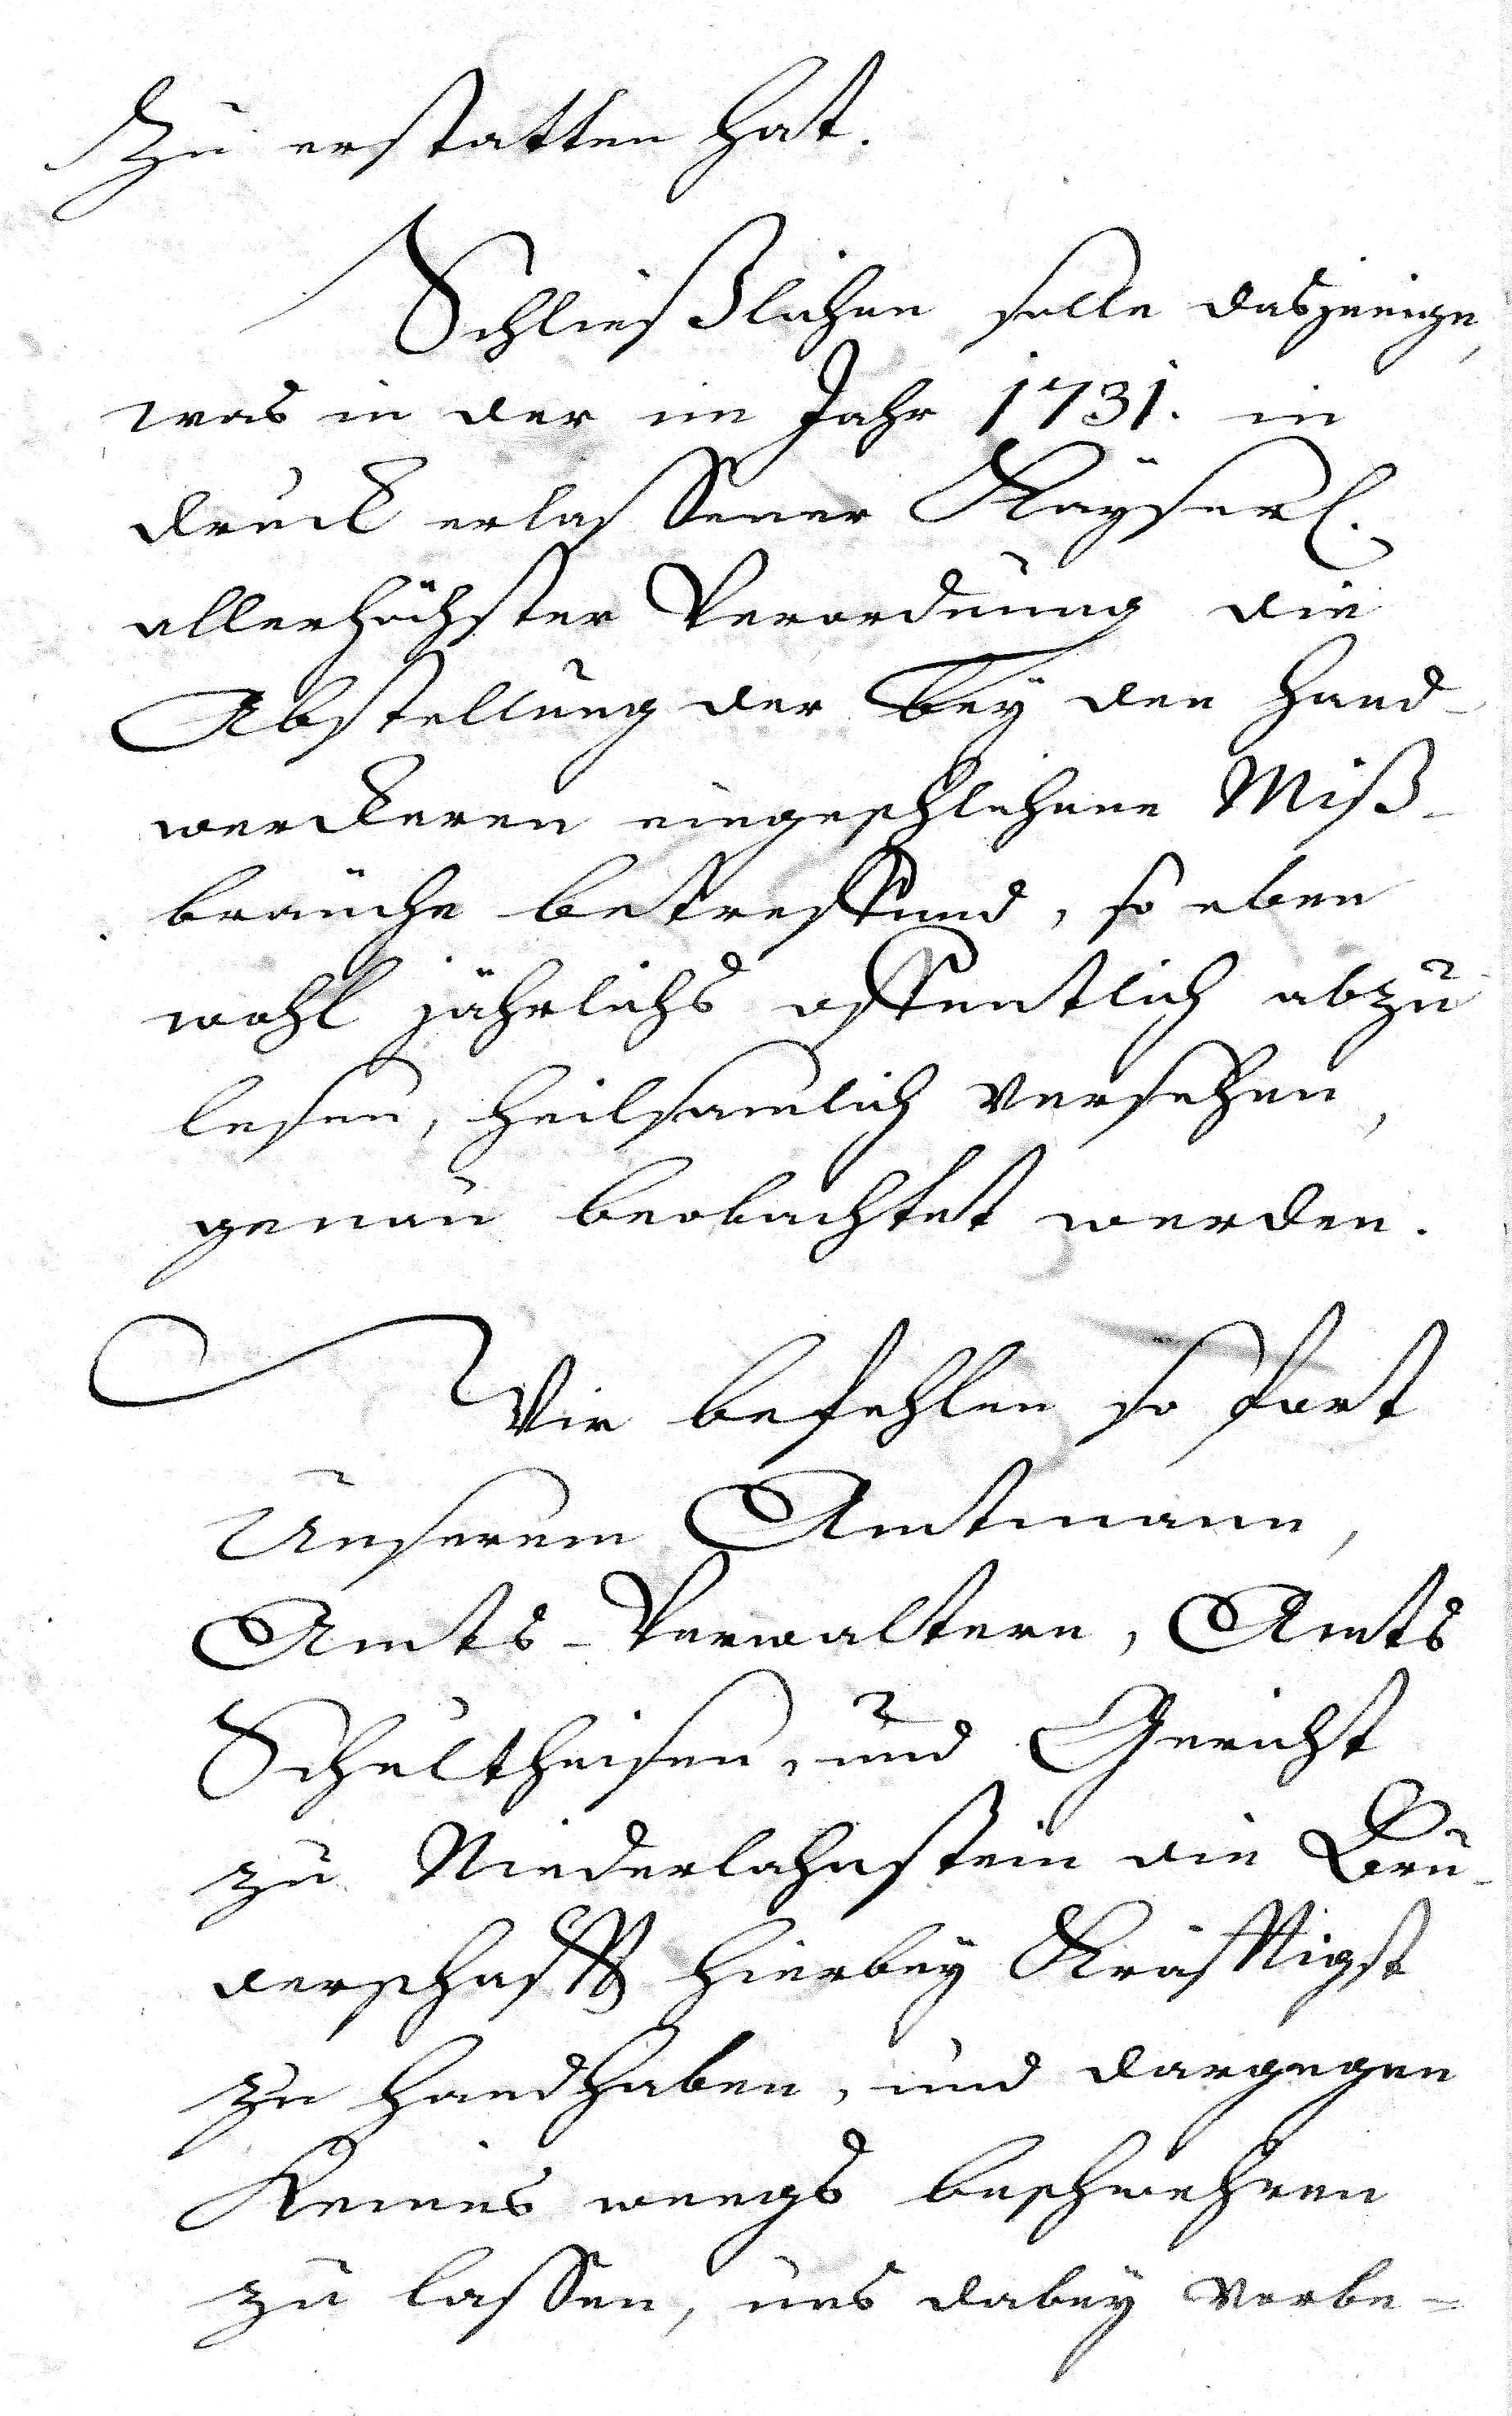 Zu erstatten hat.
Schließlichen solle dasjenige,
was in der im Jahr 1731. in
druck erlassener Kayserl.
allerhöchster Verordnung die
Abstellung der bey den Hand-
werckeren eingeschlichene Miß-
bräuche betreffend, so eben
wohl jährlichs offentlich abzu
lesen, heilsamlich versehen,
genau beobachtet werden.
Wir befehlen so fort
Unserem Amtmann,
Amts-Verwaltern, Amts
Schultheisen, und Gericht
zu Niederlahnstein die Bru-
derschafft hierbey Kräfftigst
zu handhaben, und dargegen
Keines weegs beschwehren
zu lassen, uns dabey vorbe-